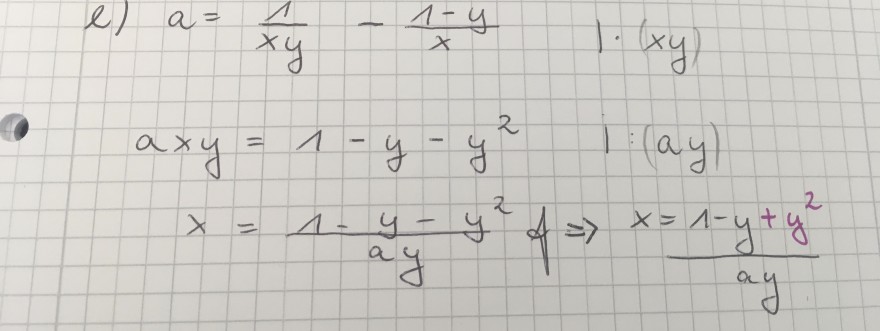 e) a = 1/xy - 1-y/x | · (xy)
axy = 1 - y - y² | : (ay)
x = 1 - y - y²/ay ∮ ⇒ x = 1-y+y²/ay